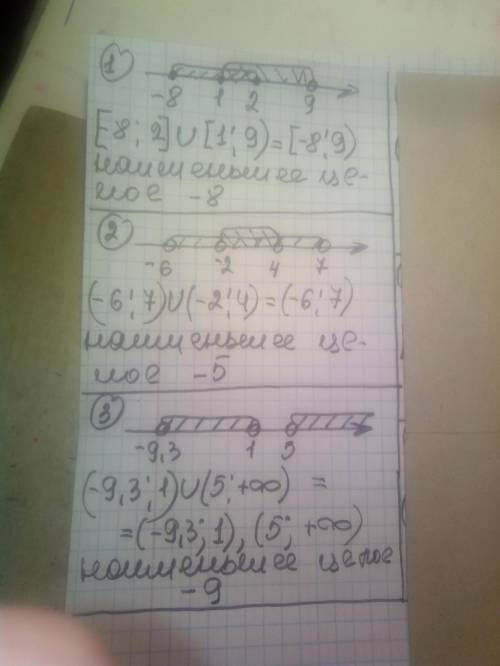 1
-8 1 2 9
[-8; 2] ∪ [1; 9) = [-8; 9)
наименьшее це-
лое -8
2
-6 -2 4 7
(-6; 7) ∪ (-2; 4) = (-6; 7)
наименьшее це-
лое -5
3
-9,3 1 5
(-9,3; 1) ∪ (5; +∞) =
= (-9,3; 1), (5; +∞)
наименьшее целое
-9